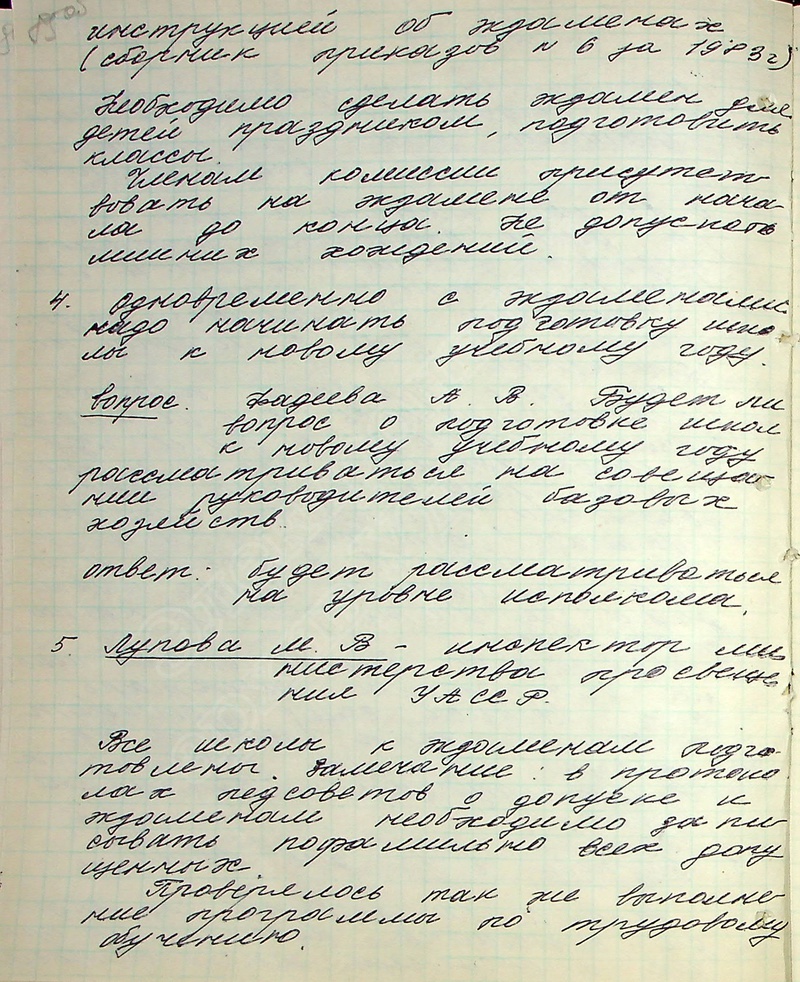 инструкцией об экзаменах
(сборник приказов N 6 за 1983 г)
Необходимо сделать экзамен для
детей праздником, подготовить
классы.
Членам комиссии присутст
вовать на экзамене от нача
ла до конца. Не допускать
лишних хождений.
4. Одновременно с экзаменами
надо начинать подготовку шко
лы к новому учебному году.
вопрос. Фадеева А. В. Будет ли
вопрос о подготовке школ
к новому учебному году
рассматриваться на совеща
нии руководителей базовых
хозяйств.
ответ: будет рассматриваться
на уровне исполкома.
5. Лупова М. В - инспектор ми
нистерства просвеще
ния УАССР.
Все школы к экзаменам подго
товлены. Замечание: в протоко
лах педсоветов о допуске к
экзаменам необходимо запи
сывать пофамильно всех допу
щенных.
Проверялось так же выполне
ние программы по трудовому
обучению.